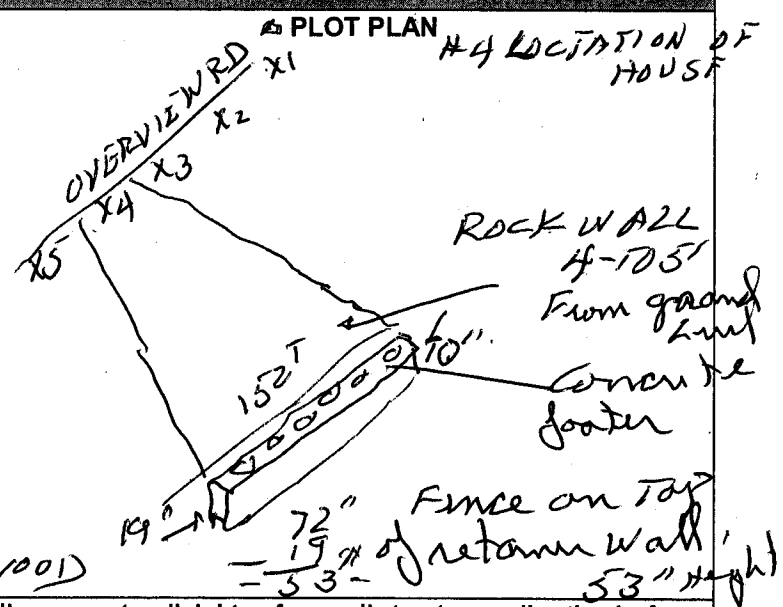 PLOT PLAN
#4 LOCTATION OF
HOUSE
OVERVIEW RD
X1
X2
X3
X4
X5
ROCK WALL
4-TO 5'
From ground
Concrete
footer
152'
10"
19"
Fence on Top
of retainer wall,
53" Height
72"
19"
= 53"